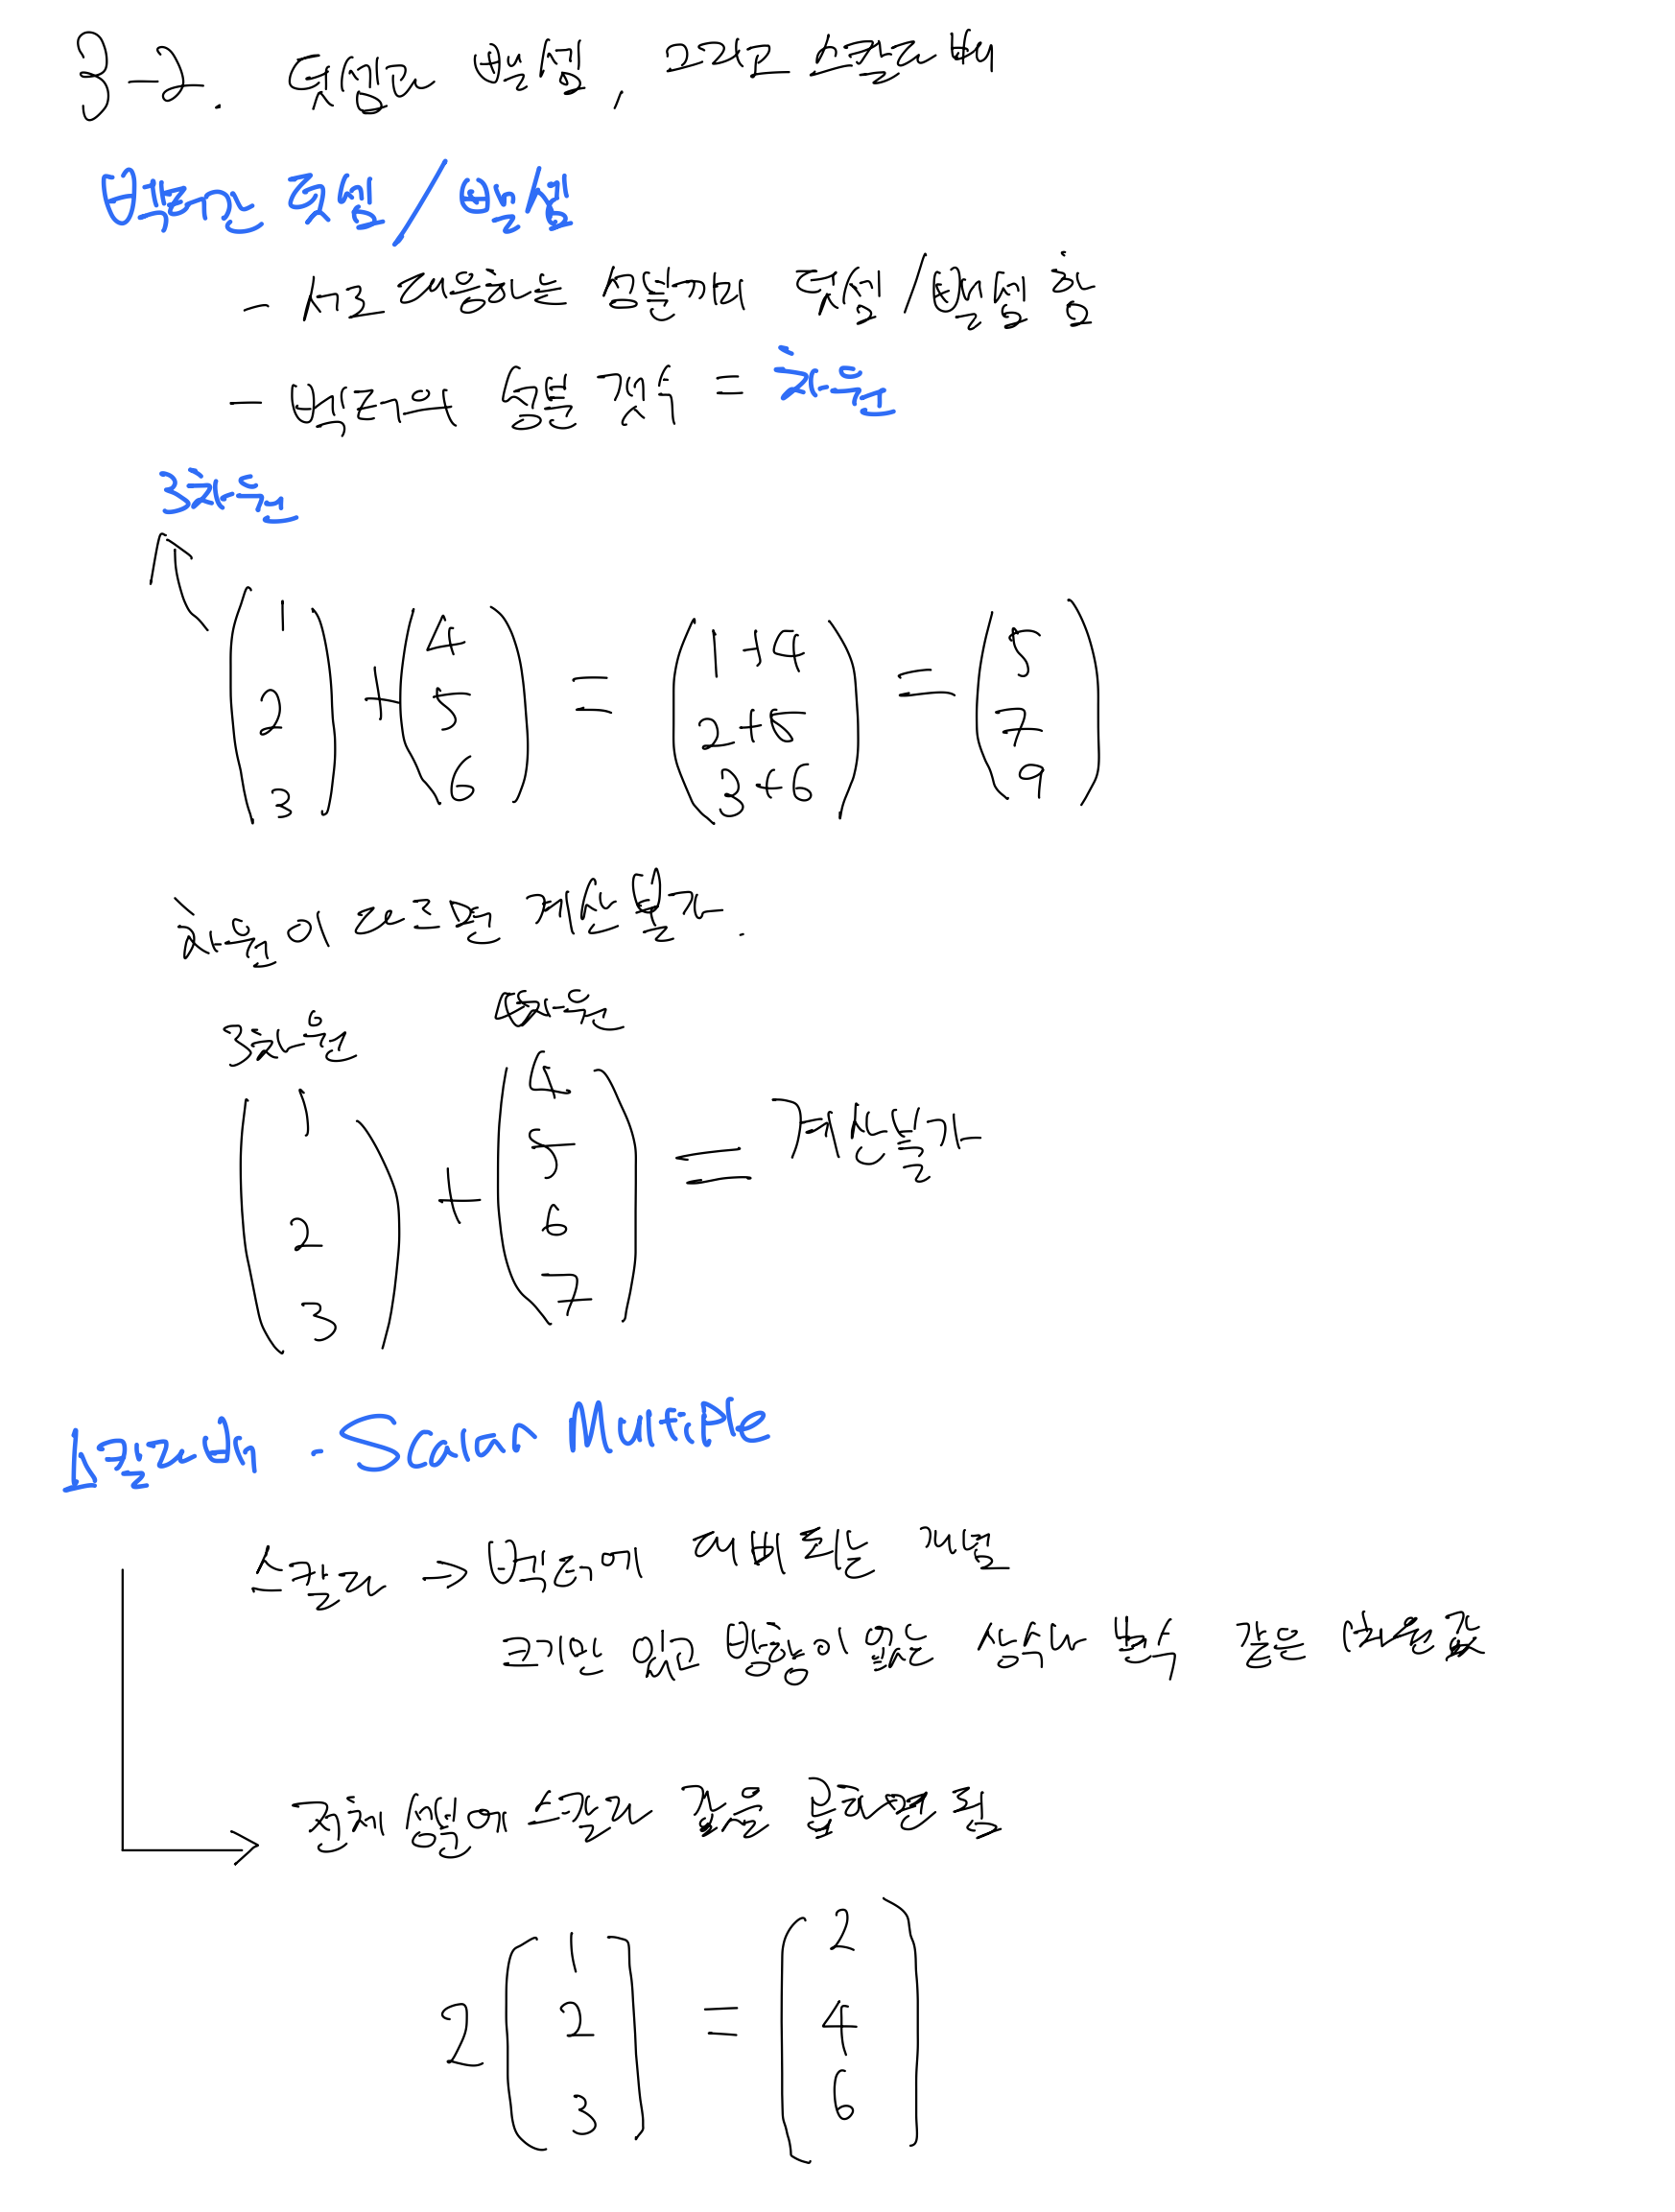 3-2. 덧셈과 뺄셈, 그리고 스칼라 배
벡터간 덧셈/뺄셈
- 서로 대응하는 성분끼리 덧셈/뺄셈 함
- 벡터의 성분 갯수 = 차원
3차원
1 4 1+4 5
2 + 5 = 2+5 = 7
3 6 3+6 9
차원이 다르면 계산 불가.
3차원 4차원
1 4
2 + 5 = 계산불가
3 6
7
스칼라배 - Scalar Multiple
스칼라 → 벡터에 대비되는 개념
크기만 있고 방향이 없는 상수나 변수 같은 값
전체 성분에 스칼라 값을 곱하면 됨
1 2
2 2 = 4
3 6